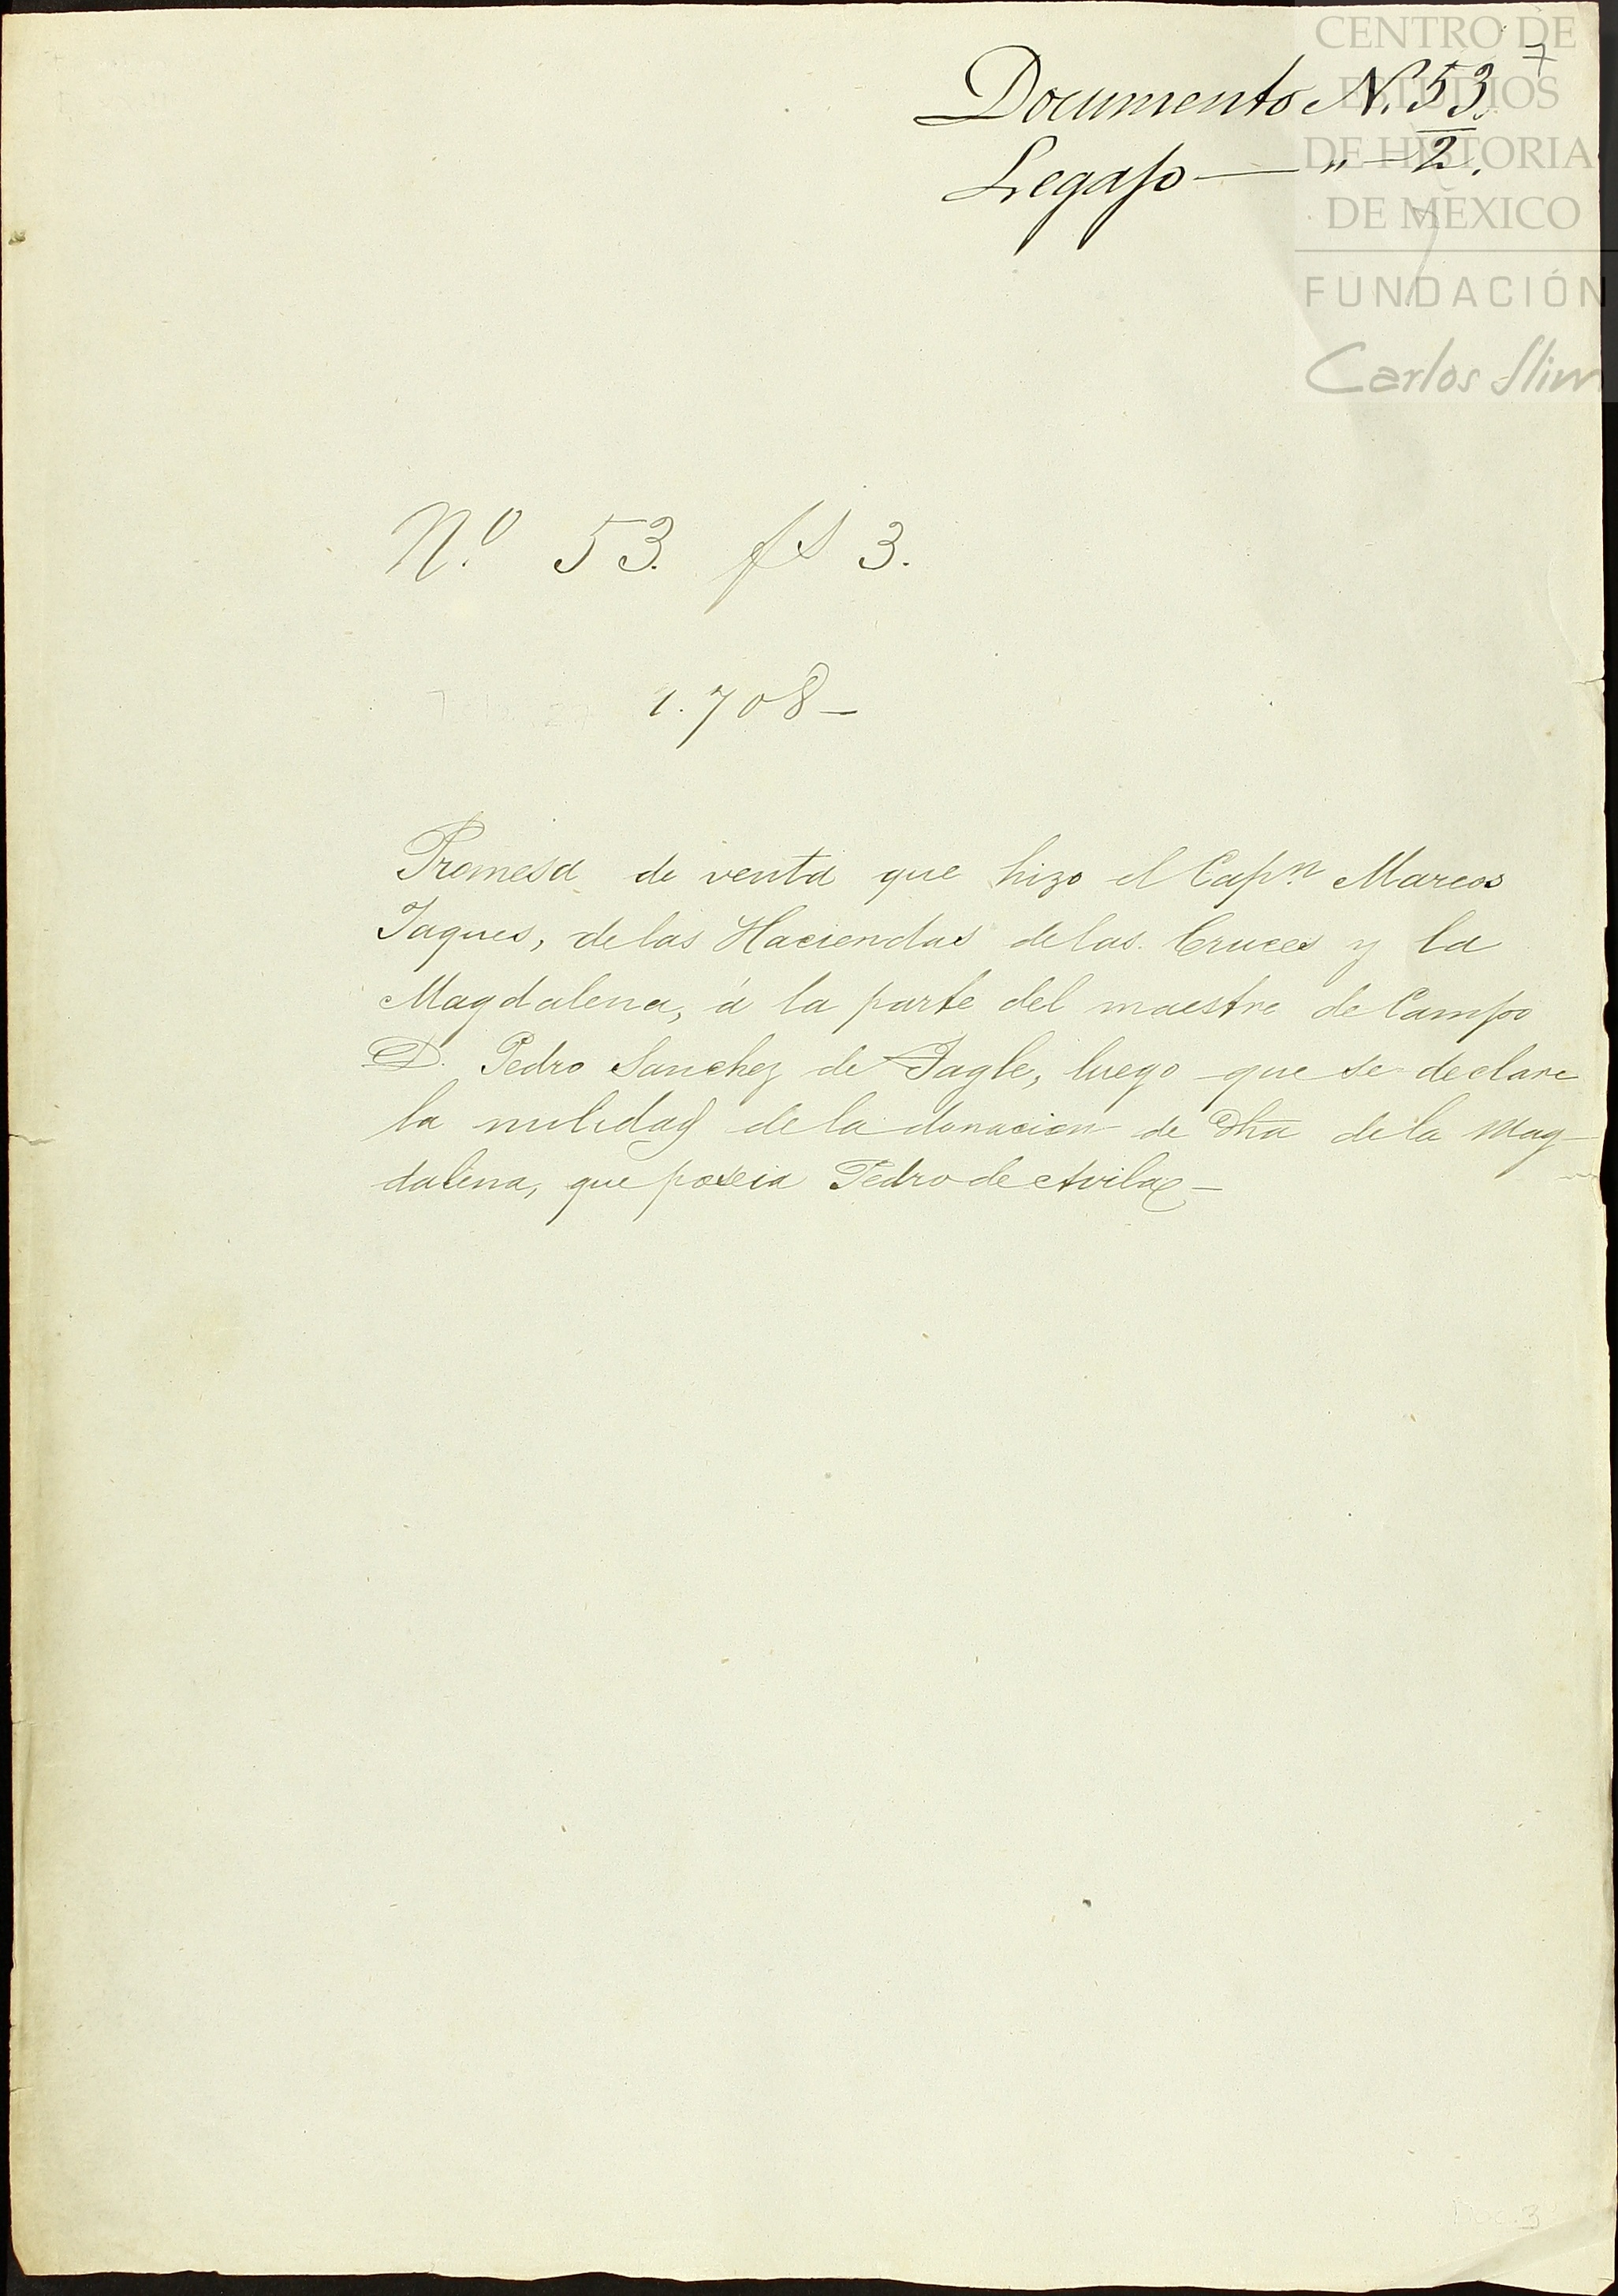 CENTRO DE
ESTUDIOS
DE HISTORIA
DE MÉXICO
FUNDACIÓN
Carlos Slim
7
Documento N. 53.
Legajo — " — 2.
N.º 53. fs 3.
1.708—
Promesa de venta que hizo el Capn. Marcos
Jaques, de las Haciendas de las Cruces y la
Magdalena, á la parte del maestre de Campo
D. Pedro Sanchez de Tagle, luego que se declare
la nulidad de la donacion de dha de la Mag-
dalena, que poseia Pedro de Avila—